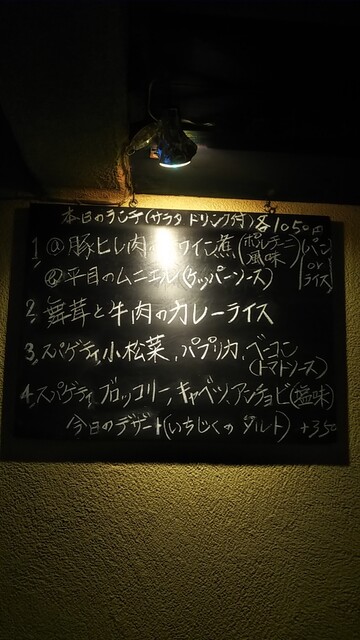 本日のランチ(サラダ ドリンク付)各1050円
1 ⓐ豚ヒレ肉の ワイン煮(ポルチーニ風味)(パン or ライス)
ⓑ平目のムニエル(ケッパーソース)
2. 舞茸と牛肉のカレーライス
3. スパゲティ、小松菜、パプリカ、ベーコン
(トマトソース)
4. スパゲティ、ブロッコリー、キャベツ、アンチョビ(塩味)
今日のデザート(いちじくの タルト) +350